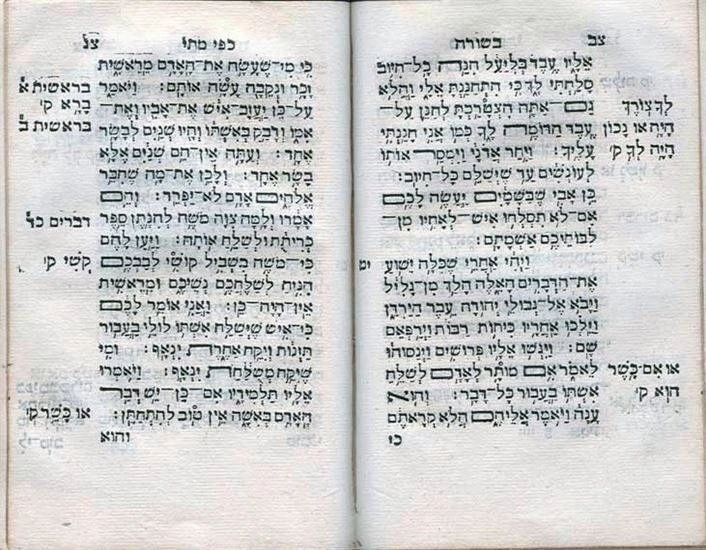 צב
בשורה
אליו עבד בליעל הנה כל־חיוב
סלחתי לך כי התחננת אלי והלא
גם־אתה הצטרכת לחנן על־
עבד הדומה לך כמו אני חננתי
עליך: ויחר אדניו וימסר־אותו
לעונשים עד שישלם כל־חיוב:
כן אבי שבשמים יעשה לכם
אם־לא תסלחו איש־לאחיו מן־
לבותיכם אשמתם:
יט
ויהי אחרי שכלה ישוע
את־הדברים האלה הלך מן־גליל
ויבא אל־גבולי יהודה עבר הירדן
וילכו אחריו כיתות רבות וירפאם
שם: ויגשו אליו פרושים וינסוהו
לאמר אם מותר לאדם לשלח
אשתו בעבור כל־דבר: והוא
ענה ויאמר אליהם הלא קראתם
כי
לך צורך
היה או נכון
היה לך קי׳
או אם־כשר
הוא קי׳
כפי מתי
צג
כי מי־שעשה את־האדם מראשית
זכר ונקבה עשה אותם: ויאמר
על־כן יעזוב־איש את־אביו ואת־
אמו ודבק באשתו והיו שנים לבשר
אחד: ועתה אין־הם שנים אלא
בשר אחד: ולכן את־מה שחיבר
אלהים אדם לא־יפרד: והם
אמרו ולמה צוה משה לתת ספר
כריתת ולשלח אותה: ויען להם
כי־משה בשביל קושי לבבכם
הניח לשלחכם נשיכם ומראשית
אין־היה־כן: ואני אומר לכם
כי־איש שישלח אשתו לולי בעבור
הזנות ויקח אחרת ינאף: ומי
שיקח משלחת ינאף: ויאמרו
אליו תלמידיו אם־כן־יש דבר
האדם באשה אין טוב להתחתן:
והוא
בראשית א
ברא קי׳
בראשית ב
דברים כד
קשי קי׳
או כשר קי׳